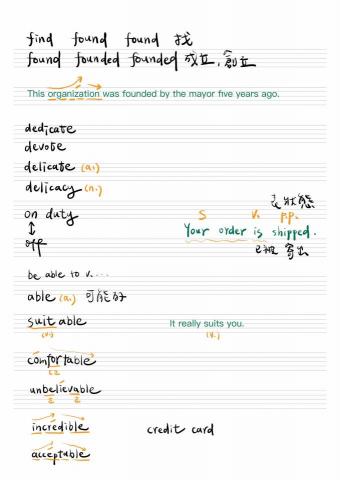 find found found 找
found founded founded 成立, 創立
This organization was founded by the mayor five years ago.
dedicate
devote
delicate (a.)
delicacy (n.)
on duty
off
表狀態
S V. p.p.
Your order is shipped.
已被 寄出
be able to v....
able (a.) 可能的
suitable
(v.)
It really suits you.
(v.)
comfortable
unbelievable
incredible
credit card
acceptable